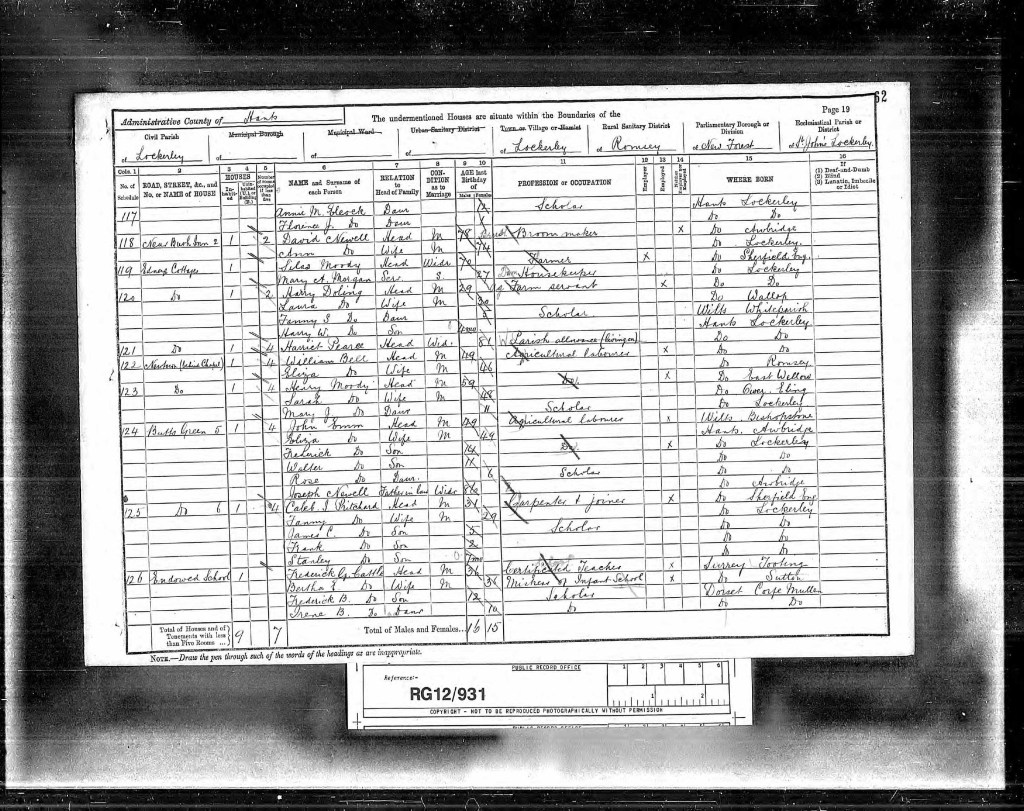 62
Administrative County of Hants The undermentioned Houses are situate within the Boundaries of the Page 19
Civil Parish Municipal Borough Municipal Ward Urban Sanitary District Town or Village or Hamlet Rural Sanitary District Parliamentary Borough or Division Ecclesiastical Parish or District
of Lockerley of of of of Lockerley of Romsey of New Forest of St John's Lockerley
Cols. 1 2 3 4 5 6 7 8 9 10 11 12 13 14 15 16
No. of Schedule ROAD, STREET, &c., and No. or NAME of HOUSE HOUSES NAME and Surname of each Person RELATION to Head of Family CONDITION as to Marriage AGE last Birthday of PROFESSION or OCCUPATION Employer Employed WHERE BORN If (1) Deaf-and-Dumb (2) Blind (3) Lunatic, Imbecile or Idiot
117 Annie M. Elcock Daur 12 Scholar Hants Lockerley
Florence J. Do Daur Do Do
118 Near Bush Inn 2 1 2 David Newell Head M 78 Broom maker x Do Awbridge
Ann Do Wife M 74 Do Lockerley
119 Cottages 1 Silas Moody Head Widr 70 Farmer x Do Sherfield Eng.
Mary A. Morgan Serv. S 27 Housekeeper Do Lockerley
120 Do 1 2 Harry Doling Head M 29 Farm servant x Do Do
Laura Do Wife M 30 Do Wallop
Fanny Do Daur Scholar Wilts Whiteparish
Harry W. Do Son Hants Lockerley
121 Do 1 4 Harriet Pearce Head Wid. 81 Parish allowance Do Do
122 Newtown 1 4 William Bell Head M 49 Agricultural labourer x Do Do
Eliza Do Wife M 46 Do Romsey
123 Do 1 4 Henry Moody Head M 59 Do x Do East Wellow
Sarah Do Wife M 48 Do Over Eling
Mary J. Do Daur 11 Scholar Do Lockerley
124 Butts Green 5 1 4 John Emm Head M 49 Agricultural labourer x Wilts Bishopstone
Eliza Do Wife M 49 Hants Awbridge
Frederick Do Son 14 Do x Do Lockerley
Walter Do Son 11 Do Do
Rose Do Daur. 6 Scholar Do Do
Joseph Newell Father in law Widr 86 Do Awbridge
125 Do 6 1 4 Caleb J. Pritchard Head M 31 Carpenter & joiner x Do Sherfield Eng
Fanny Do Wife M 29 Do Lockerley
James C. Do Son 5 Scholar Do Do
Frank Do Son 2 Do Do
Stanley Do Son Do Do
126 Endowed School 1 Frederick G. Cattle Head M 36 Certificated Teacher x Surrey Tooting
Bertha Do Wife M 36 Mistress of Infant School x Do Sutton
Frederick B. Do Son 12 Scholar Dorset Corfe Mullen
Irene B. Do Daur 10 Do Do Do
Total of Houses and of Tenements with less than Five Rooms 9 7 Total of Males and Females... 16 15
NOTE.—Draw the pen through such of the words of the headings as are inappropriate.
PUBLIC RECORD OFFICE 1 2 3 4 5 6
Reference:-
RG12/931 1 2
COPYRIGHT - NOT TO BE REPRODUCED PHOTOGRAPHICALLY WITHOUT PERMISSION
PUBLIC RECORD OFFICE